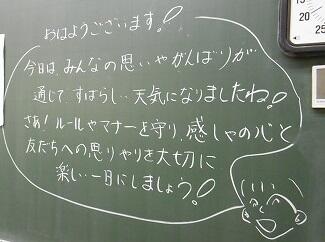 おはようございます!
今日は、みんなの思いやがんばりが
通じて、すばらしい天気になりましたね!
さあ!ルールやマナーを守り、感しゃの心と
友だちへの思いやりを大切に
楽しい一日にしましょう!